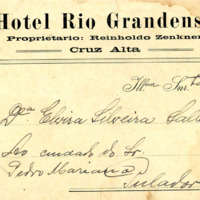 Hotel Rio Grandens
Proprietario: Reinholdo Zenkner
Cruz Alta
Illma Snr.
D.a Elvira Silveira
Ao cuidado do Sr.
Pedro Mariano